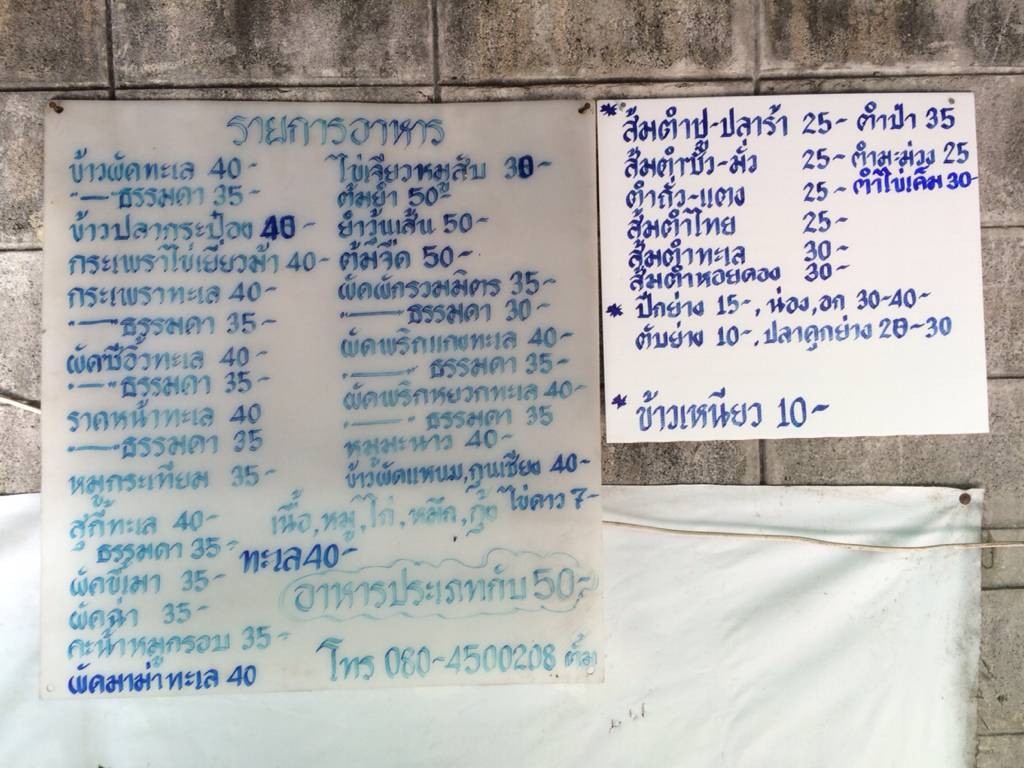 รายการอาหาร
ข้าวผัดทะเล 40-
"—" ธรรมดา 35-
ข้าวปลากระป๋อง 40-
กระเพราไข่เยี่ยวม้า 40-
กระเพราทะเล 40-
"—" ธรรมดา 35-
ผัดซีอิ๊วทะเล 40-
"—" ธรรมดา 35-
ราดหน้าทะเล 40
"—" ธรรมดา 35
หมูกระเทียม 35-
สุกี้ทะเล 40-
ธรรมดา 35-
ทะเล 40-
ผัดขี้เมา 35-
ผัดฉ่า 35-
คะน้าหมูกรอบ 35-
ผัดมาม่าทะเล 40
ไข่เจียวหมูสับ 30
ต้มยำ 50-
ยำวุ้นเส้น 50-
ต้มจืด 50-
ผัดผักรวมมิตร 35-
"—" ธรรมดา 30-
ผัดพริกแกงทะเล 40-
"—" ธรรมดา 35-
ผัดพริกหยวกทะเล 40-
"—" ธรรมดา 35
หมูมะนาว 40-
ข้าวผัดแหนม,กุนเชียง 40-
ไข่ดาว 7-
เนื้อ,หมู,ไก่,หมึก,กุ้ง
อาหารประเภทกับ 50-
โทร 080-4500208
* ส้มตำปู-ปลาร้า 25- ตำป่า 35
ส้มตำซั่ว-มั่ว 25- ตำมะม่วง 25
ตำถั่ว-แตง 25- ตำไข่เค็ม 30-
ส้มตำไทย 25-
ส้มตำทะเล 30-
ส้มตำหอยดอง 30-
* ปีกย่าง 15-, น่อง,อก 30-40-
ตับย่าง 10-, ปลาดุกย่าง 20-30
* ข้าวเหนียว 10-